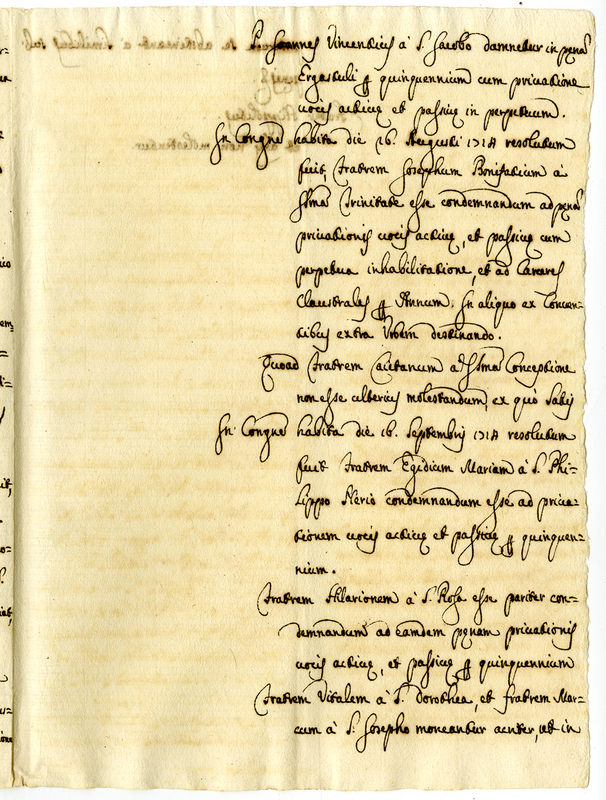 P. Joannes Vincentius à S. Jacobo damnetur in pęnā
Ergastuli ꝑ quinquennium cum privatione
vocis activę et passivę in perpetuum.
In Congne habita die 26. Augusti 1714 resolutum
fuit, Fratrem Josephum Bonifatium à
SSma Trinitate esse condemnandum ad pęnā
privationis vocis activę, et passivę cum
perpetua inhabilitatione, et ad Carceres
Claustrales ꝑ Annum, In aliquo ex Conven=
tibus extra Urbem destinando.
Quoad Fratrem Caietanum a SSma Conceptione
non esse ulterius molestandum, ex quo Satis
In Congne habita die 16. Septembris 1714 resolutum
fuit Fratrem Egidium Mariam à S. Phi=
lippo Nerio condemnandum esse ad priva=
tionem vocis activę et passivę ꝑ quinquen=
nium.
Fratrem Hilarionem à S. Rosa esse pariter con=
demnandum ad eamdem pęnam privationis
vocis activę, et passivę ꝑ quinquennium
Fratrem Vitalem à S. Dorothea, et fratrem Mar=
cum à S. Josepho moneantur acriter, et in